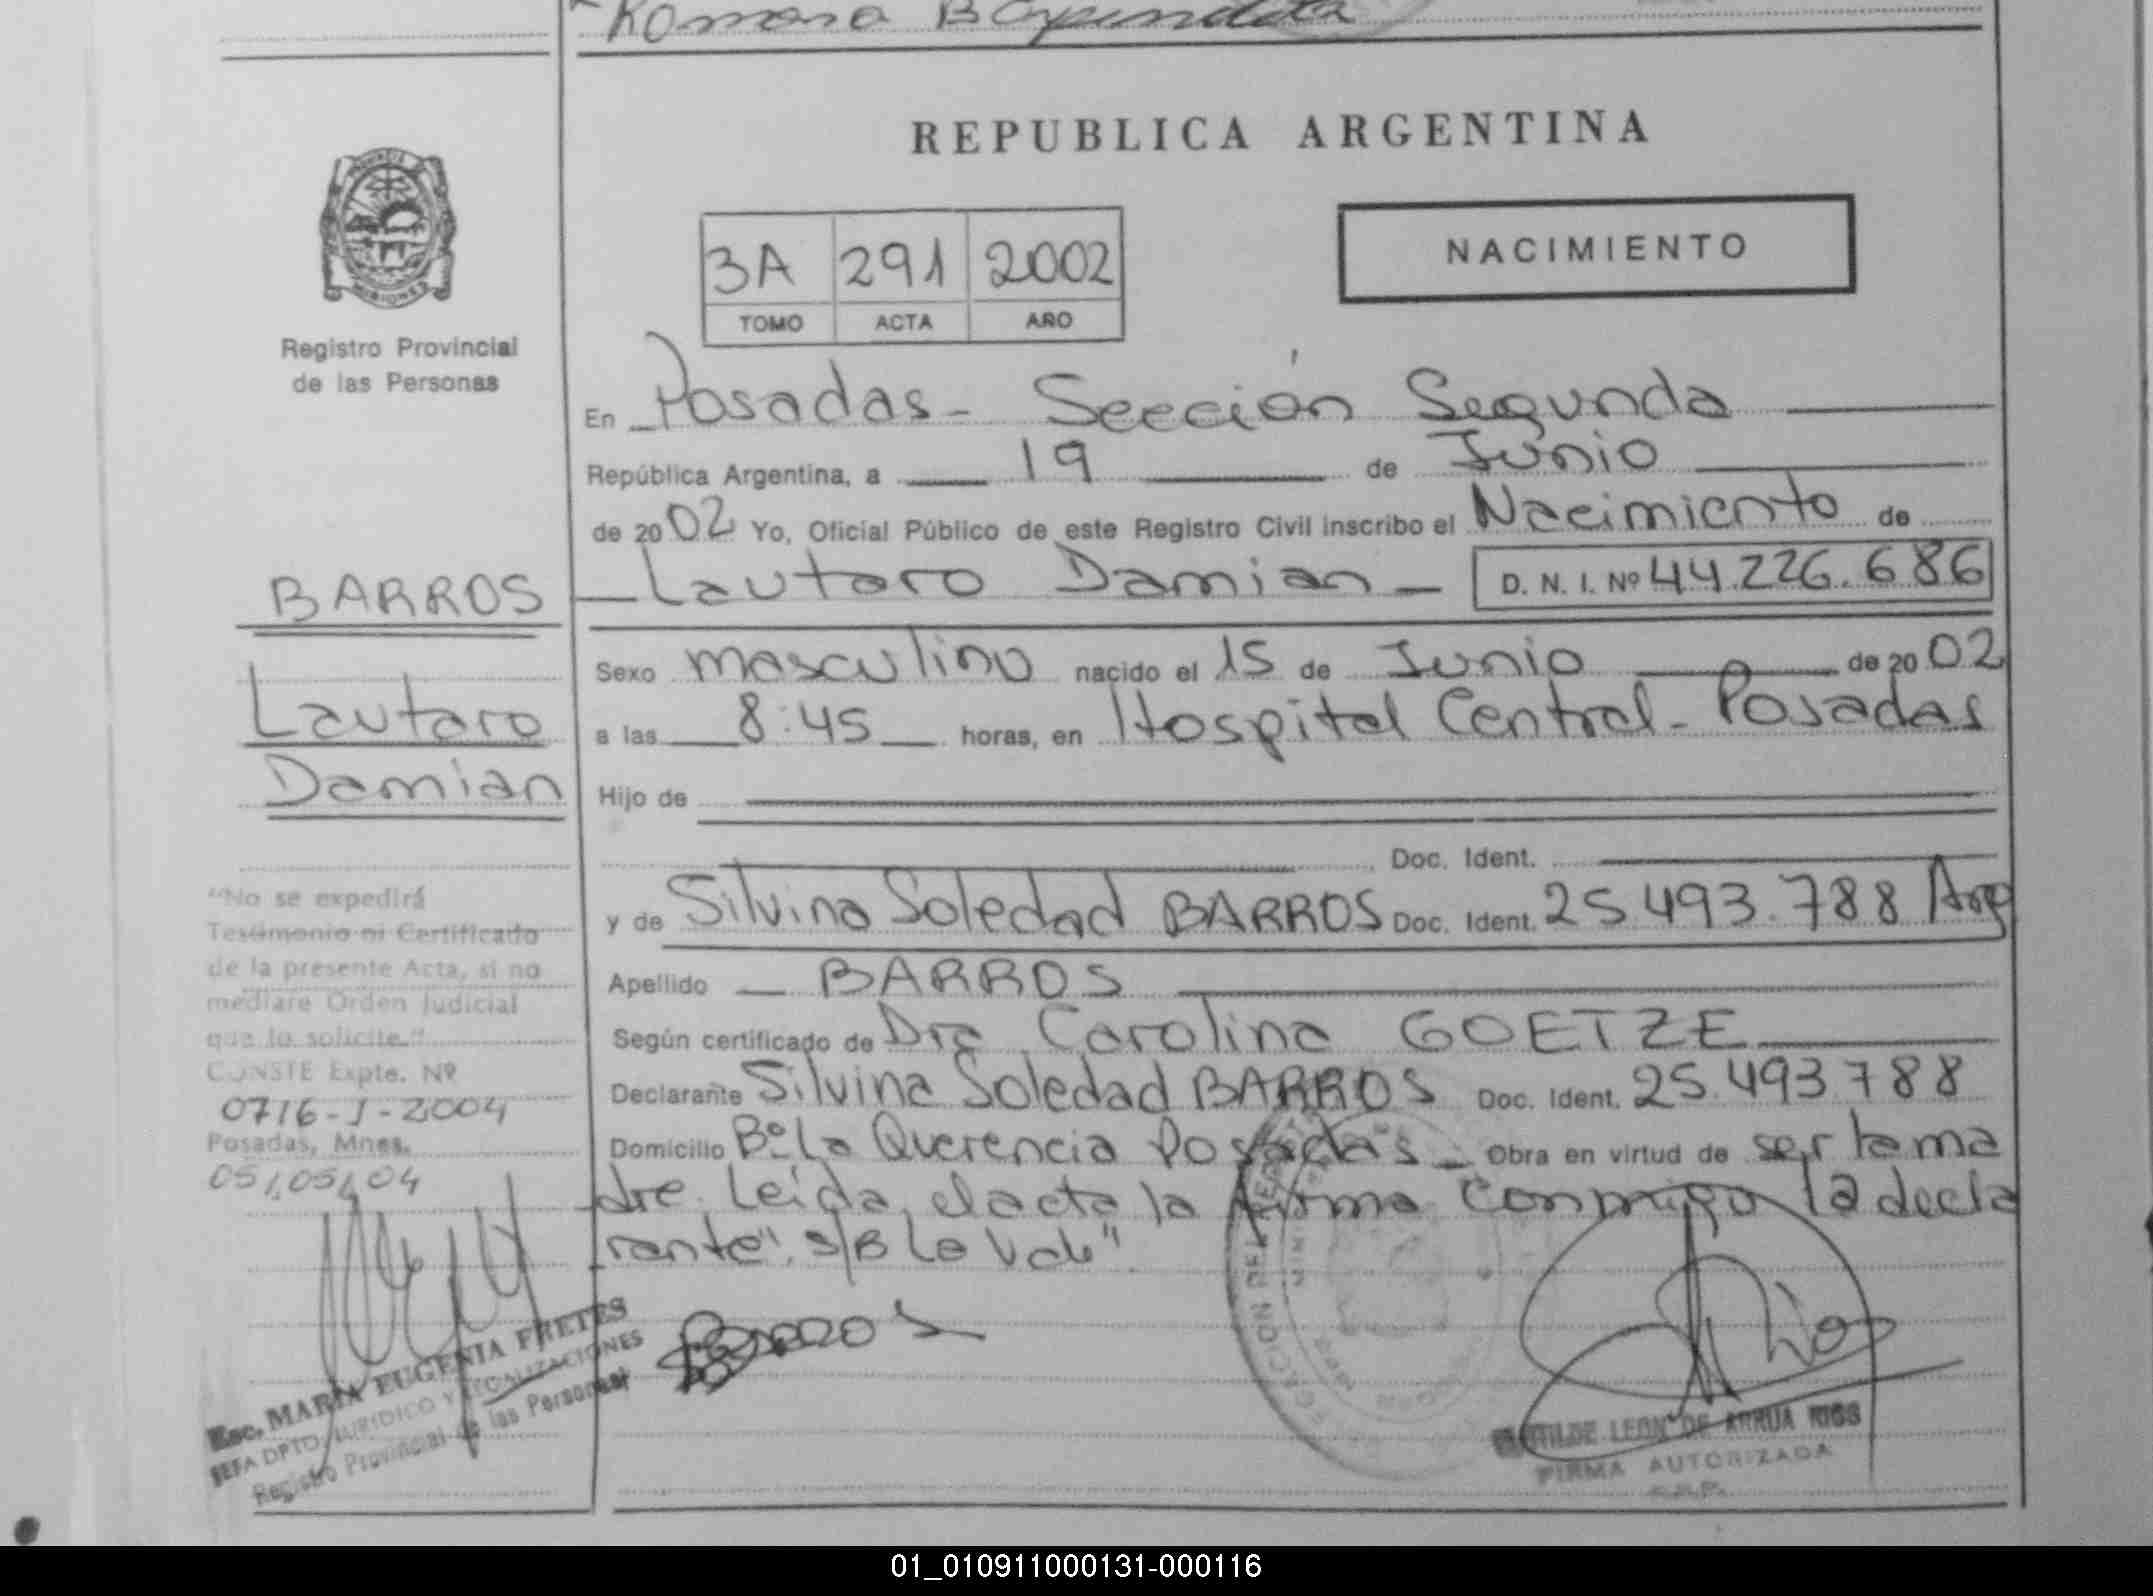 Romona B
REPUBLICA ARGENTINA
MISIONES
Registro Provincial
de las Personas
3A 291 2002
TOMO ACTA AÑO
NACIMIENTO
En Posadas - Sección Segunda
República Argentina, a 19 de Junio
de 2002 Yo, Oficial Público de este Registro Civil inscribo el Nacimiento de
Lautaro Damian - D. N. I. Nº 44.226.686
BARROS
Lautaro
Damian
Sexo masculino nacido el 15 de Junio de 2002
a las 8:45 horas, en Hospital Central - Posadas
Hijo de
Doc. Ident.
y de Silvina Soledad BARROS Doc. Ident. 25.493.788 Arg
Apellido BARROS
Según certificado de Dra Carolina GOETZE
Declarante Silvina Soledad BARROS Doc. Ident. 25.493.788
Domicilio Bº La Querencia Posadas - Obra en virtud de ser la ma
dre. Leida el acta la firma conmigo la decla
rante". S/B La Vale".
"No se expedirá
Testimonio ni Certificado
de la presente Acta, si no
mediare Orden Judicial
que lo solicite."
CONSTE Expte. Nº
0716-J-2004
Posadas, Mnes.
05/05/04
Esc. MARIA EUGENIA FRETES
JEFA DPTO. JURIDICO Y LEGALIZACIONES
Registro Provincial de las Personas
Barros
LEON DE ARRUA RIOS
FIRMA AUTORIZADA
01_010911000131-000116